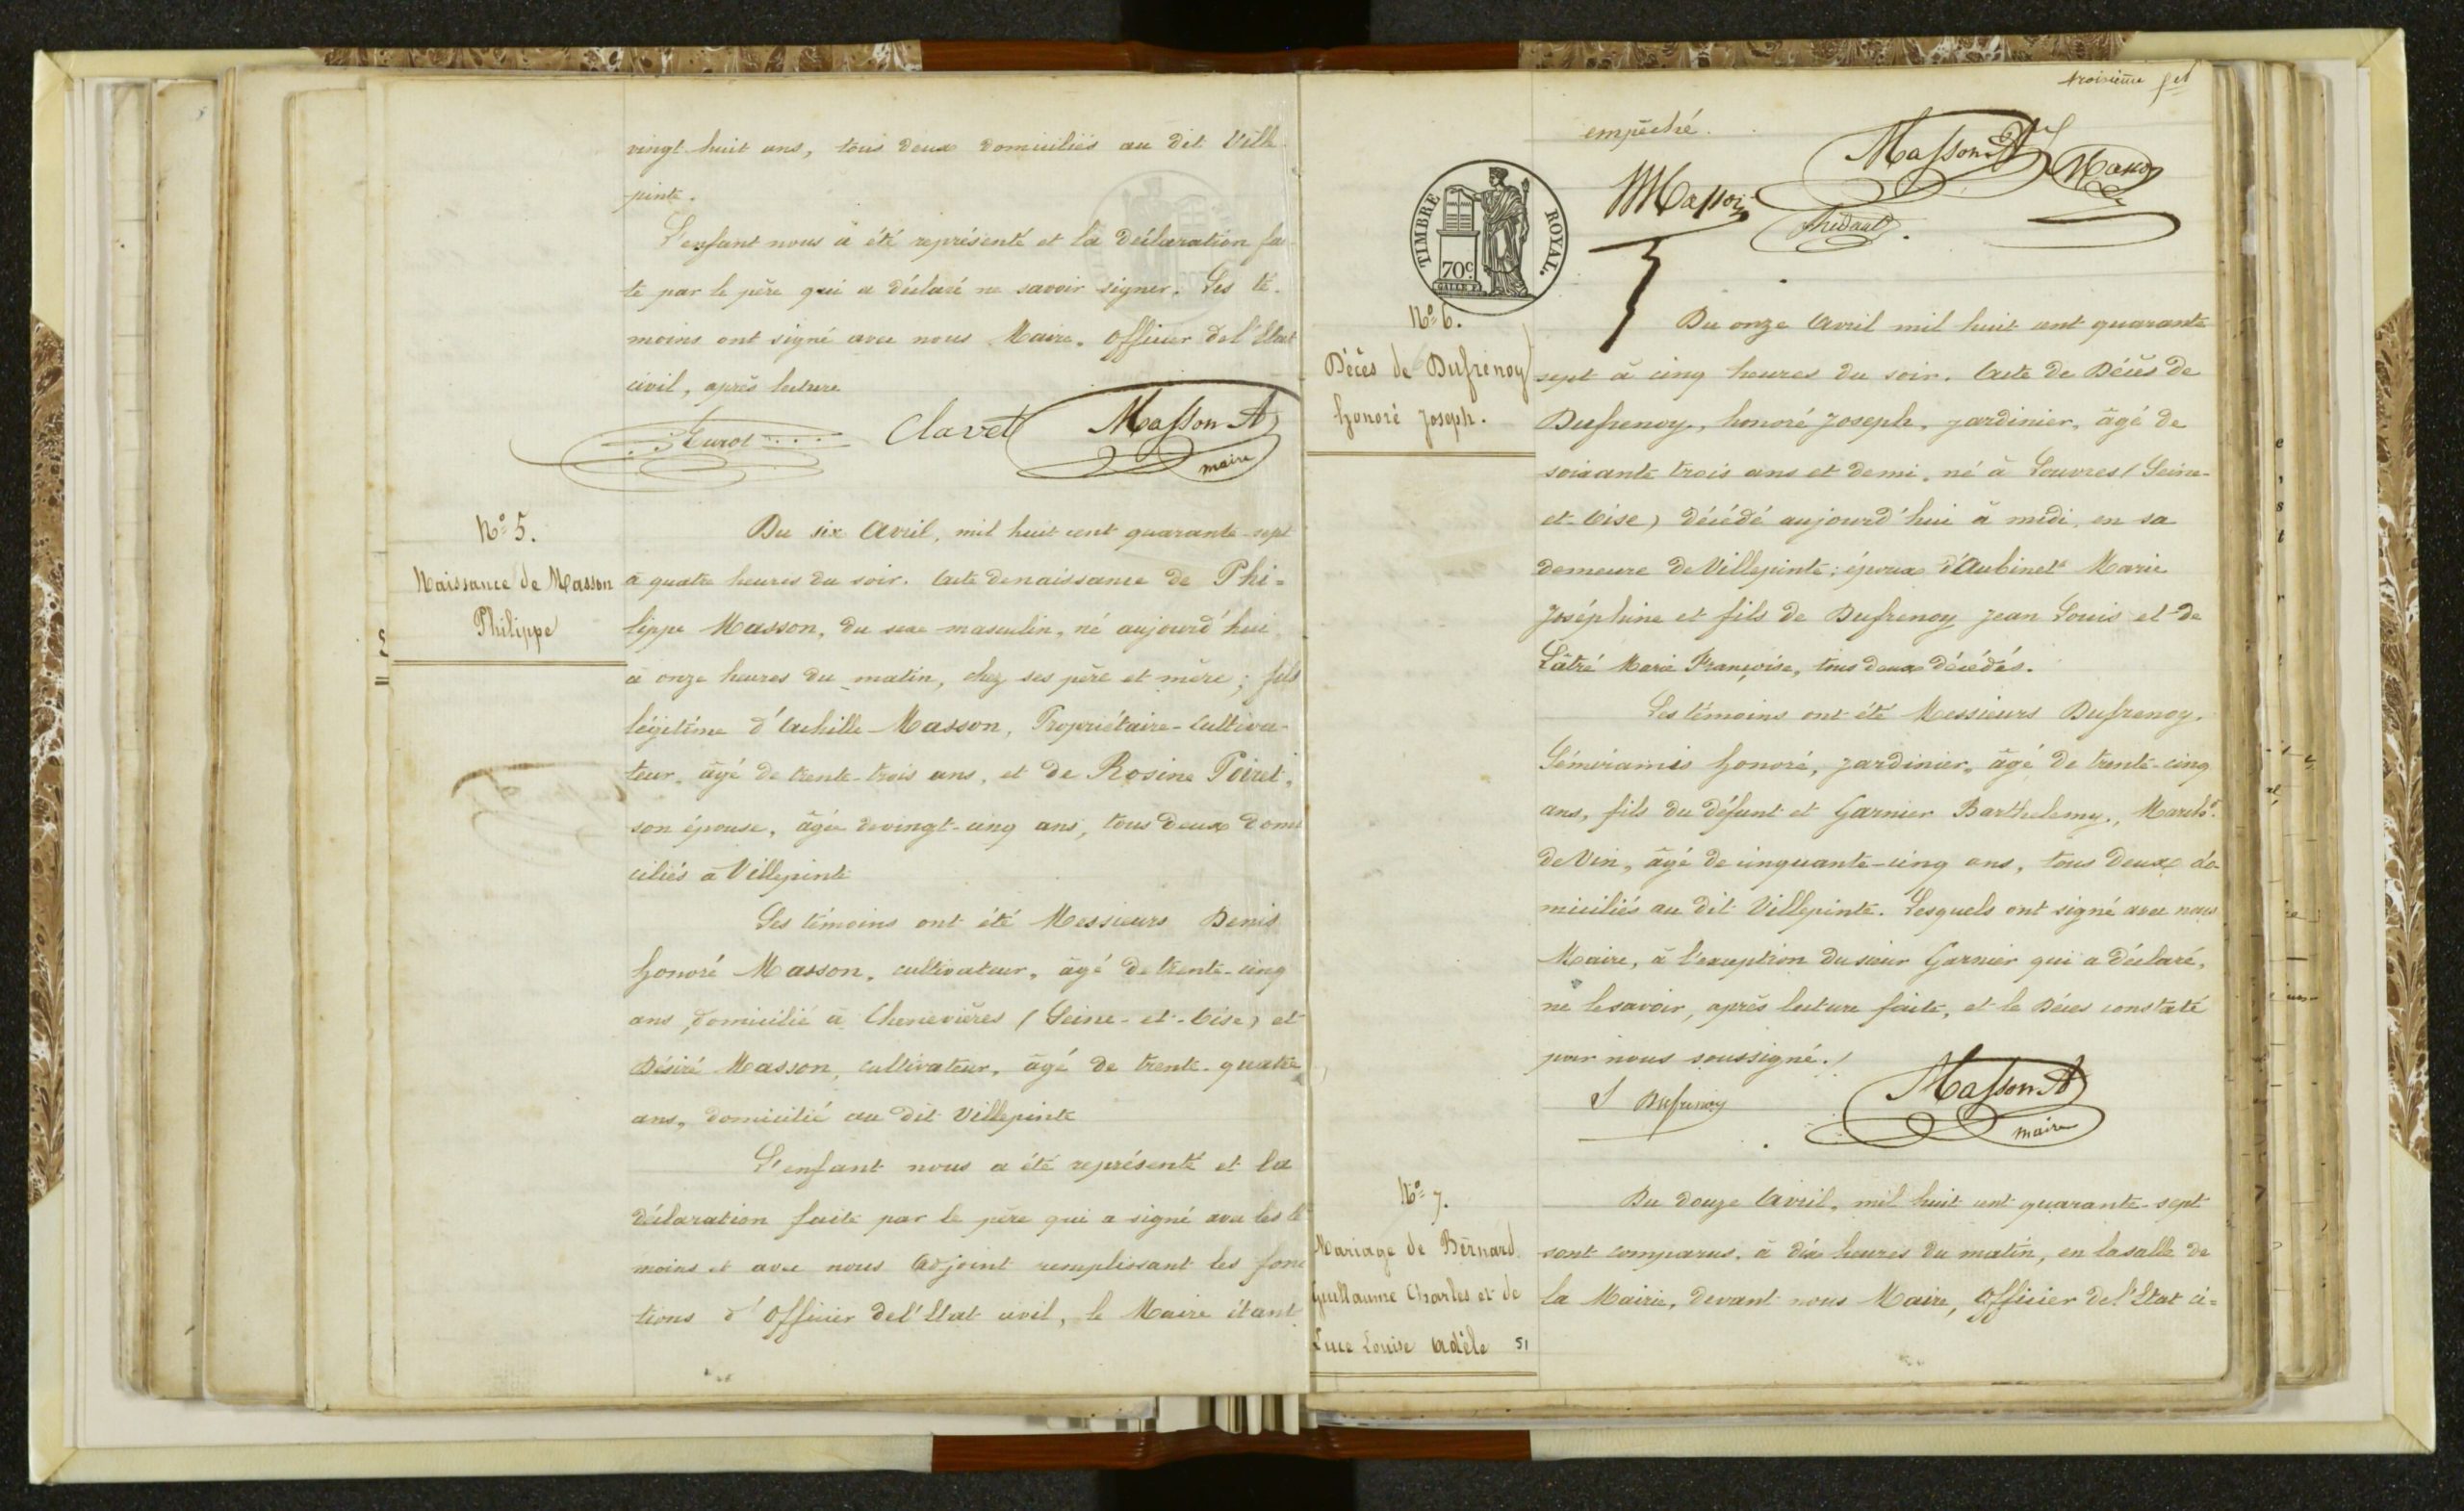 vingt-huit ans, tous deux domiciliés au dit Ville
pinte.
L'enfant nous a été représenté et la déclaration fai
te par le père qui a déclaré ne savoir signer. Les té-
moins ont signé avec nous Maire. Officier de l'Etat
civil, après lecture
Clavet
Masson A
maire
N° 5.
Naissance de Masson
Philippe
Du six Avril, mil huit cent quarante-sept
à quatre heures du soir. Acte de naissance de Phi=
lippe Masson, du sexe masculin, né aujourd'hui
à onze heures du matin, chez ses père et mère; fils
légitime d'Achille Masson, Propriétaire-Cultiva-
teur, âgé de trente-trois ans, et de Rosine Poiret,
son épouse, âgée de vingt-cinq ans, tous deux domi
ciliés à Villepinte
Les témoins ont été Messieurs Denis
honoré Masson, cultivateur, âgé de trente-cinq
ans, domicilié à Chenevières (Seine-et-Oise) et
Désiré Masson, cultivateur, âgé de trente-quatre
ans, domicilié au dit Villepinte
L'enfant nous a été représenté et la
déclaration faite par le père qui a signé avec les té
moins et avec nous Adjoint remplissant les fonc
tions d'Officier de l'Etat civil, le Maire étant
troisième
empêché.
Masson A
Masson
Masson
TIMBRE ROYAL.
70c
N° 6.
Décès de Dufrenoy
honoré Joseph.
Du onze Avril mil huit cent quarante
sept à cinq heures du soir. Acte de Décès de
Dufrenoy, honoré Joseph, jardinier, âgé de
soixante trois ans et demi, né à Louvres (Seine-
et-Oise) décédé aujourd'hui à midi, en sa
demeure de Villepinte; époux d'Aubinet Marie
Joséphine et fils de Dufrenoy Jean Louis et de
Lâtré Marie Françoise, tous deux décédés.
Les témoins ont été Messieurs Dufrenoy,
Sémiramis honoré, jardinier, âgé de trente-cinq
ans, fils du défunt et Garnier Barthelemy, March.d
de Vin, âgé de cinquante-cinq ans, tous deux do
miciliés au dit Villepinte. Lesquels ont signé avec nous
Maire, à l'exception du sieur Garnier qui a déclaré,
ne le savoir, après lecture faite, et le Décès constaté
par nous soussigné.
S Dufrenoy
Masson A
maire
N° 7.
Mariage de Bernard
Guillaume Charles et de
Luce Louise Adèle
51
Du douze Avril, mil huit cent quarante-sept
sont comparus, à dix heures du matin, en la salle de
la Mairie, devant nous Maire, Officier de l'Etat ci=